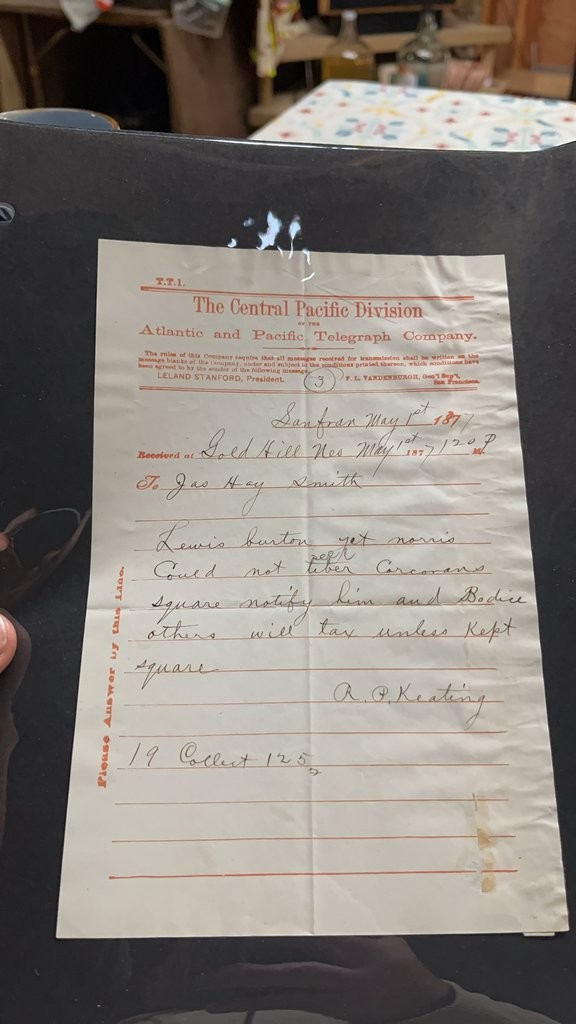 T.T.1.
The Central Pacific Division
OF THE
Atlantic and Pacific Telegraph Company.
The rules of this Company require that all messages received for transmission shall be written on the
message blanks of the Company, under and subject to the conditions printed thereon, which conditions have
been agreed to by the sender of the following message.
LELAND STANFORD, President.
3
F. L. VANDENBURGH, Gen'l Sup't,
San Francisco.
Sanfran May 1st 1877
Received at Gold Hill Nev May 1st 1877 120 P M.
To Jas Hay Smith
Lewis burton yet norris
seek
Could not tiber Corcorans
square notify him and Bodice
others will tax unless Kept
square
R. P. Keating
19 Collect 125
Please Answer by this Line.